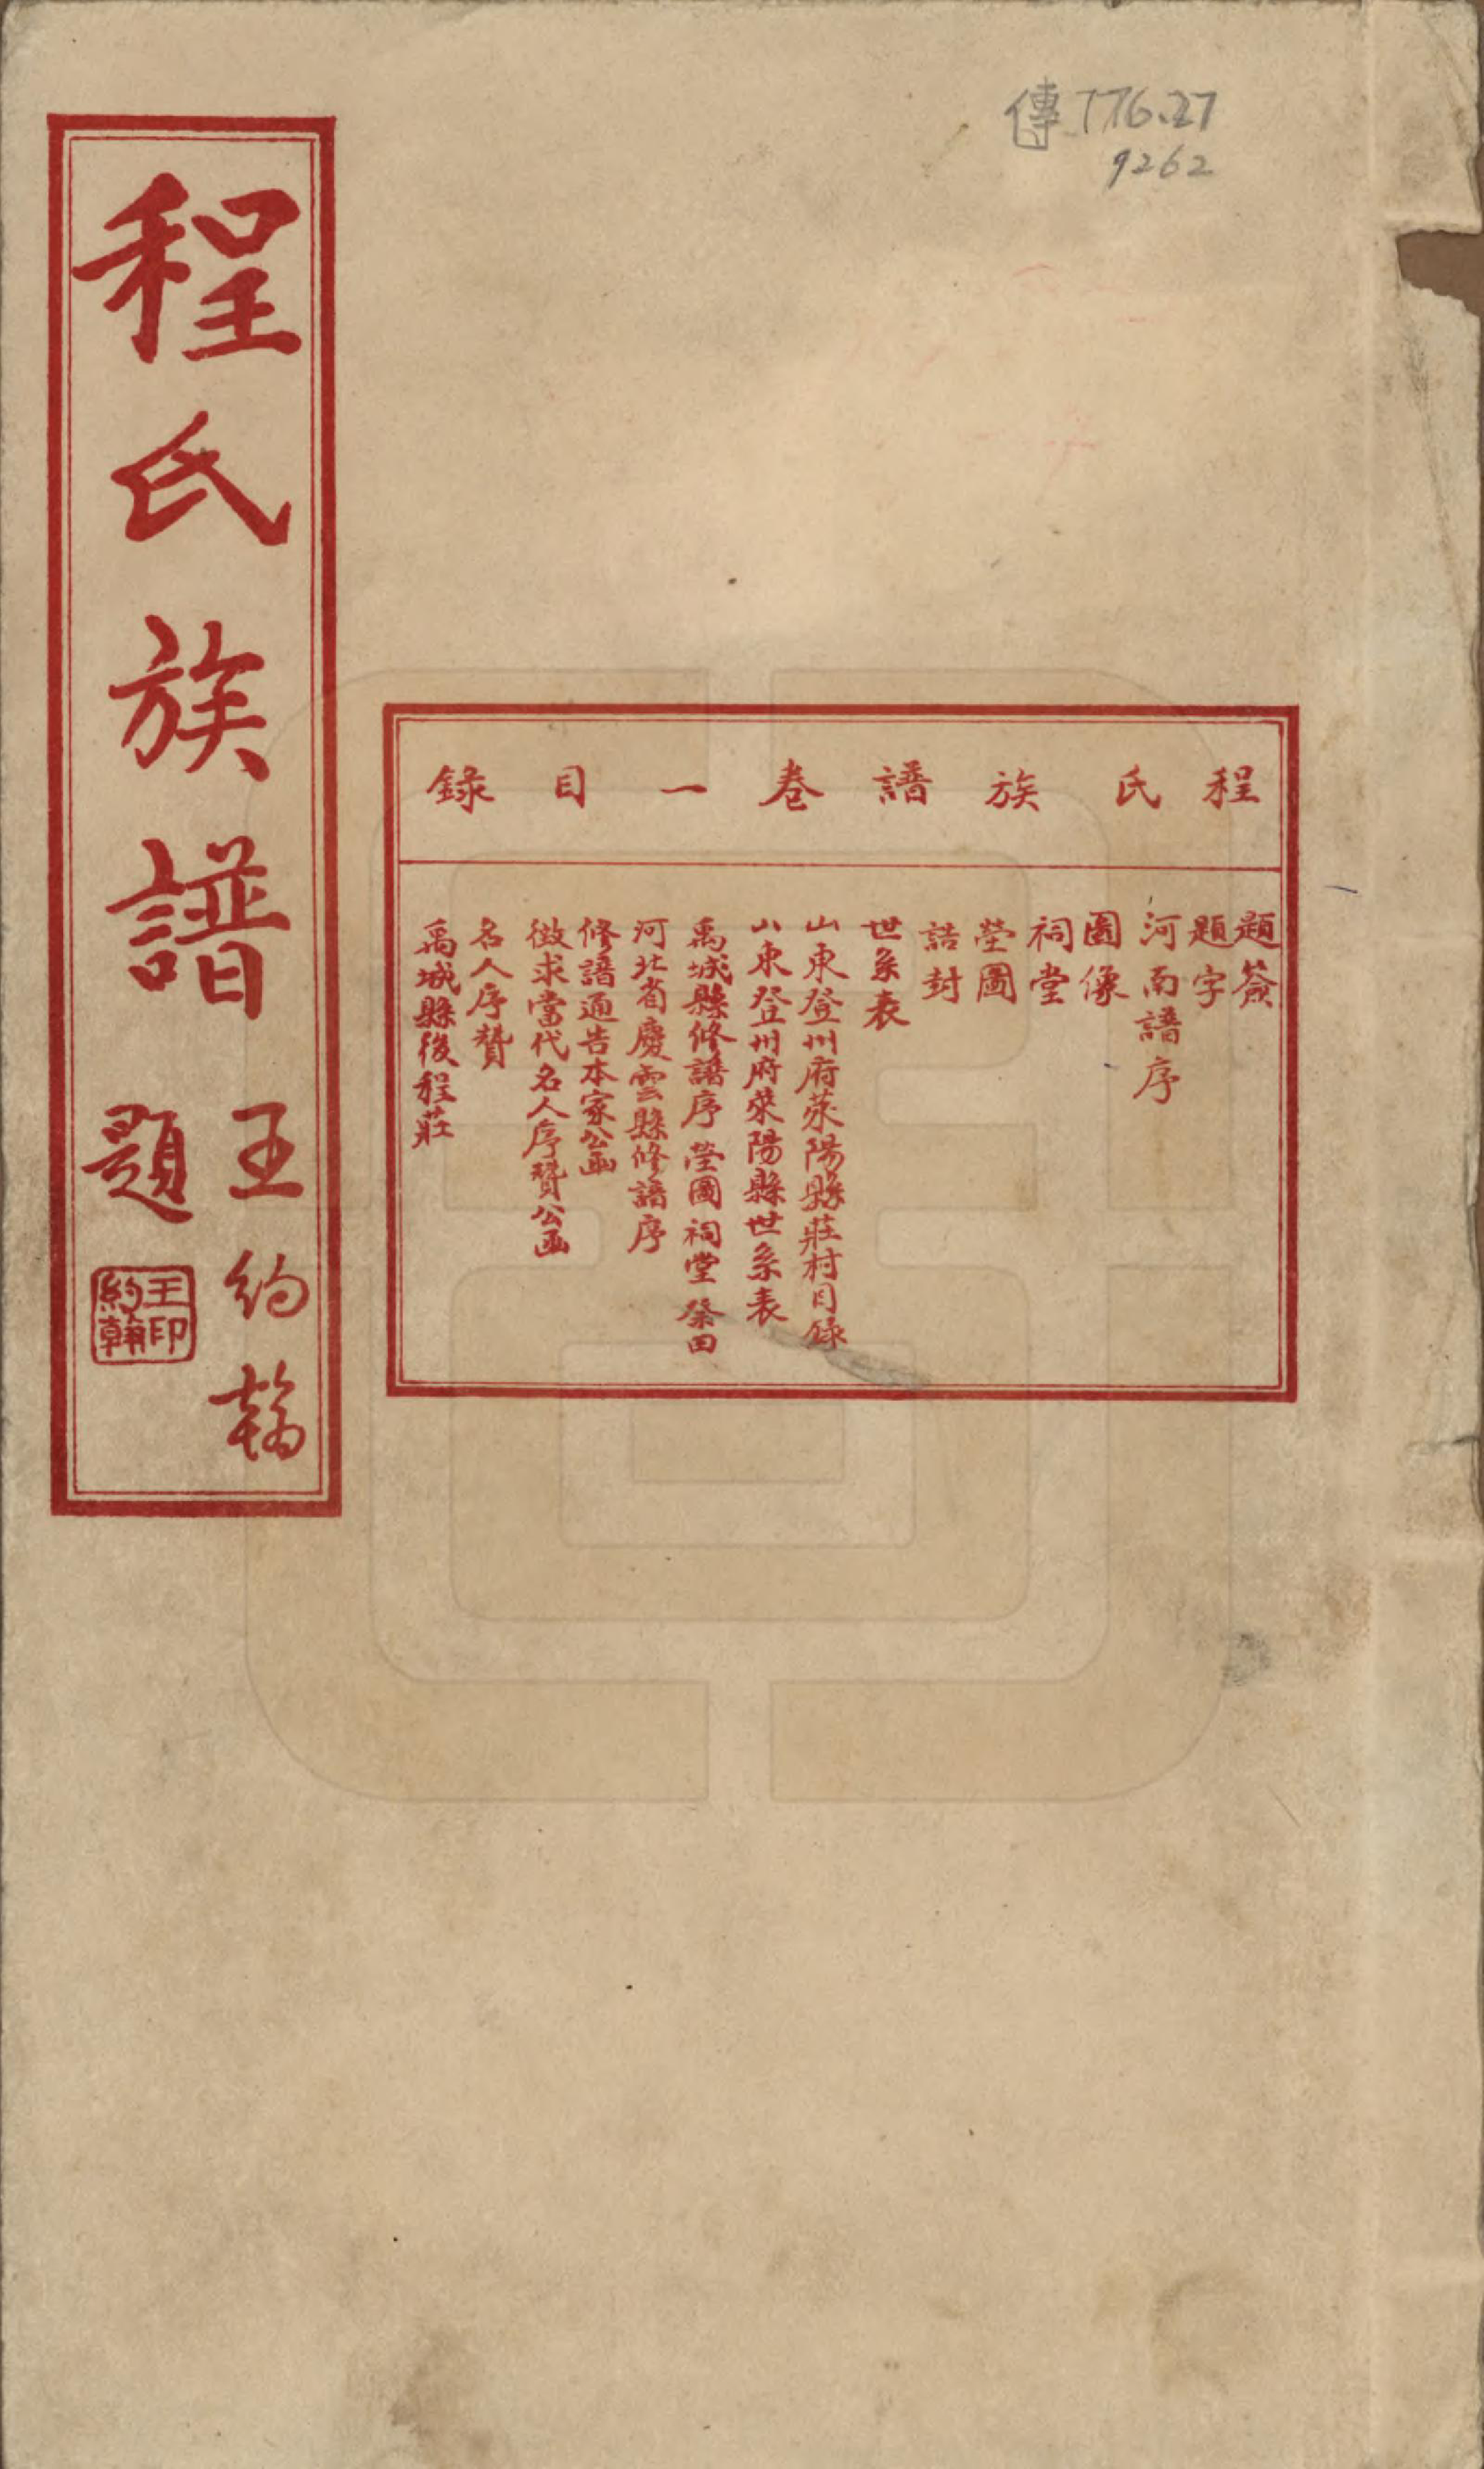 傳 776.27
9262
程氏族譜卷一目錄
題簽
題字
河南譜序
圖像
祠堂
塋圖
誥封
世系表
山東登州府萊陽縣莊村目錄
山東登州府萊陽縣世系表
禹城縣修譜序 塋圖 祠堂 祭田
河北省慶雲縣修譜序
修譜通告本家公函
徵求當代名人序贊公函
名人序贊
禹城縣後程莊
程氏族譜
王約翰
題
王印
約翰